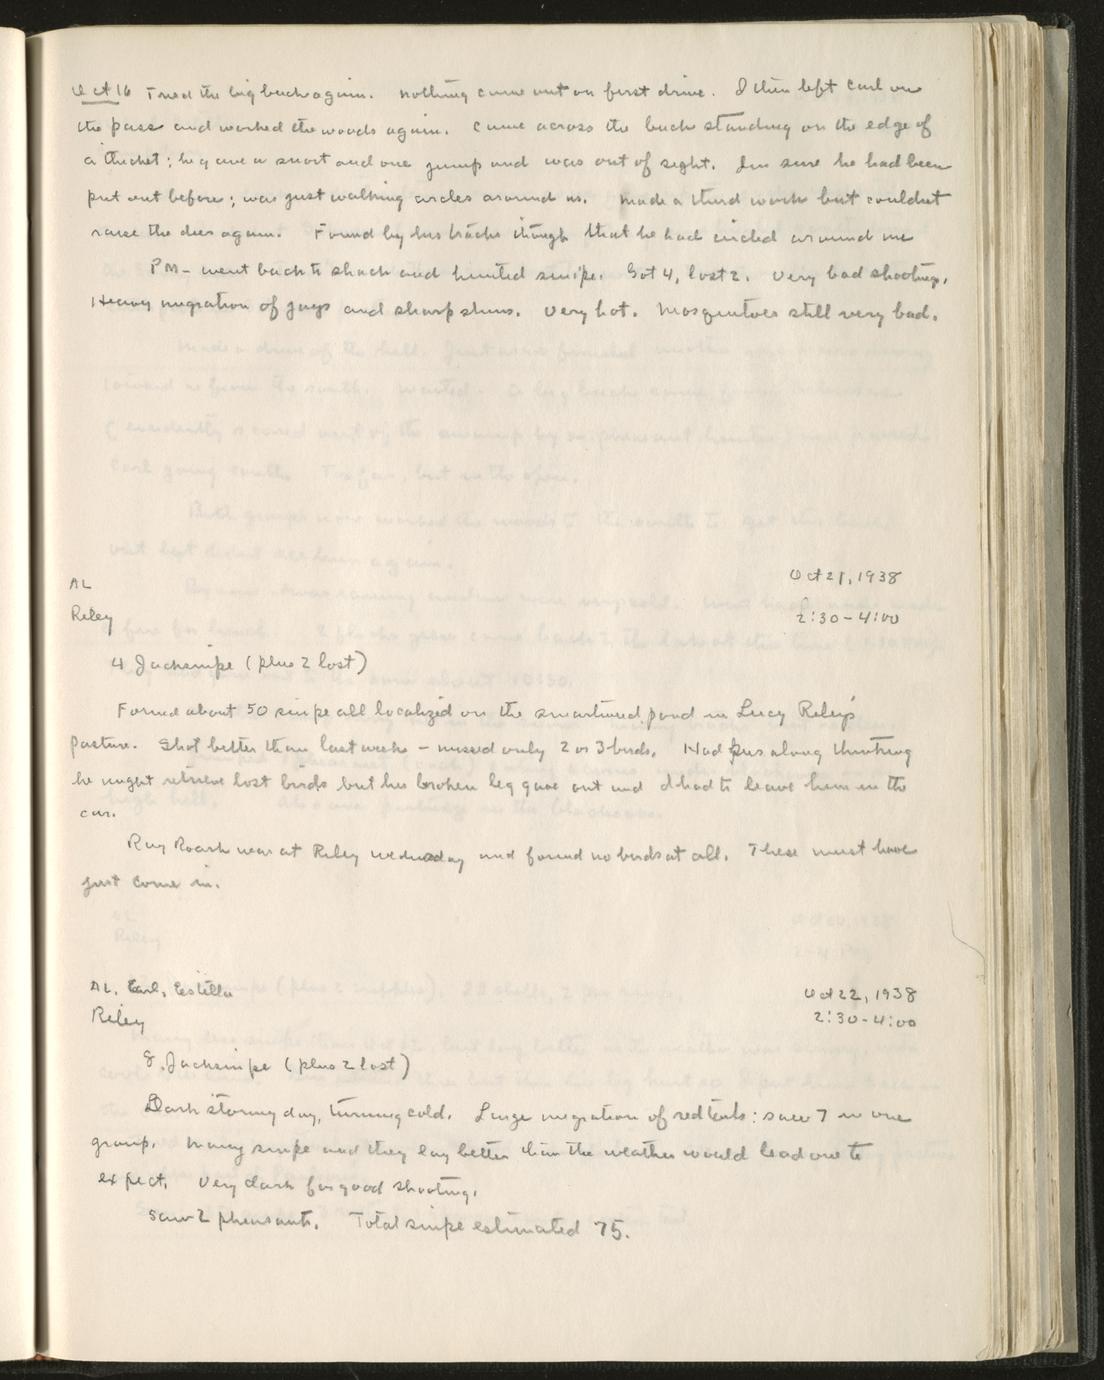 Oct 16 Tried the big buck again. Nothing came out on first drive. I then left Carl on
the pass and worked the woods again. Came across the buck standing on the edge of
a thicket; he gave a snort and one jump and was out of sight. Im sure he had been
put out before; was just walking circles around us. Made a third work but couldnt
raise the deer again. Found by his tracks though that he had circled around me
PM - went back to shack and hunted snipe. Got 4, lost 2. Very bad shooting.
Heavy migration of jays and sharpshins. Very hot. Mosquitoes still very bad.
AL
Oct 21, 1938
Riley
2:30-4:00
4 Jacksnipe (plus 2 lost)
Found about 50 snipe all localized on the smartweed pond in Lucy Riley's
pasture. Shot better than last week - missed only 2 or 3 birds. Had Gus along thinking
he might retrieve lost birds but his broken leg gave out and I had to leave him in the
car.
Ray Roark was at Riley Wednesday and found no birds at all. These must have
just come in.
AL, Carl, Estella
Oct 22, 1938
Riley
2:30-4:00
8 Jacksnipe (plus 2 lost)
Dark stormy day, turning cold. Large migration of redtails: saw 7 in one
group. Many snipe and they lay better than the weather would lead one to
expect. Very dark for good shooting.
Saw 2 pheasants. Total snipe estimated 75.